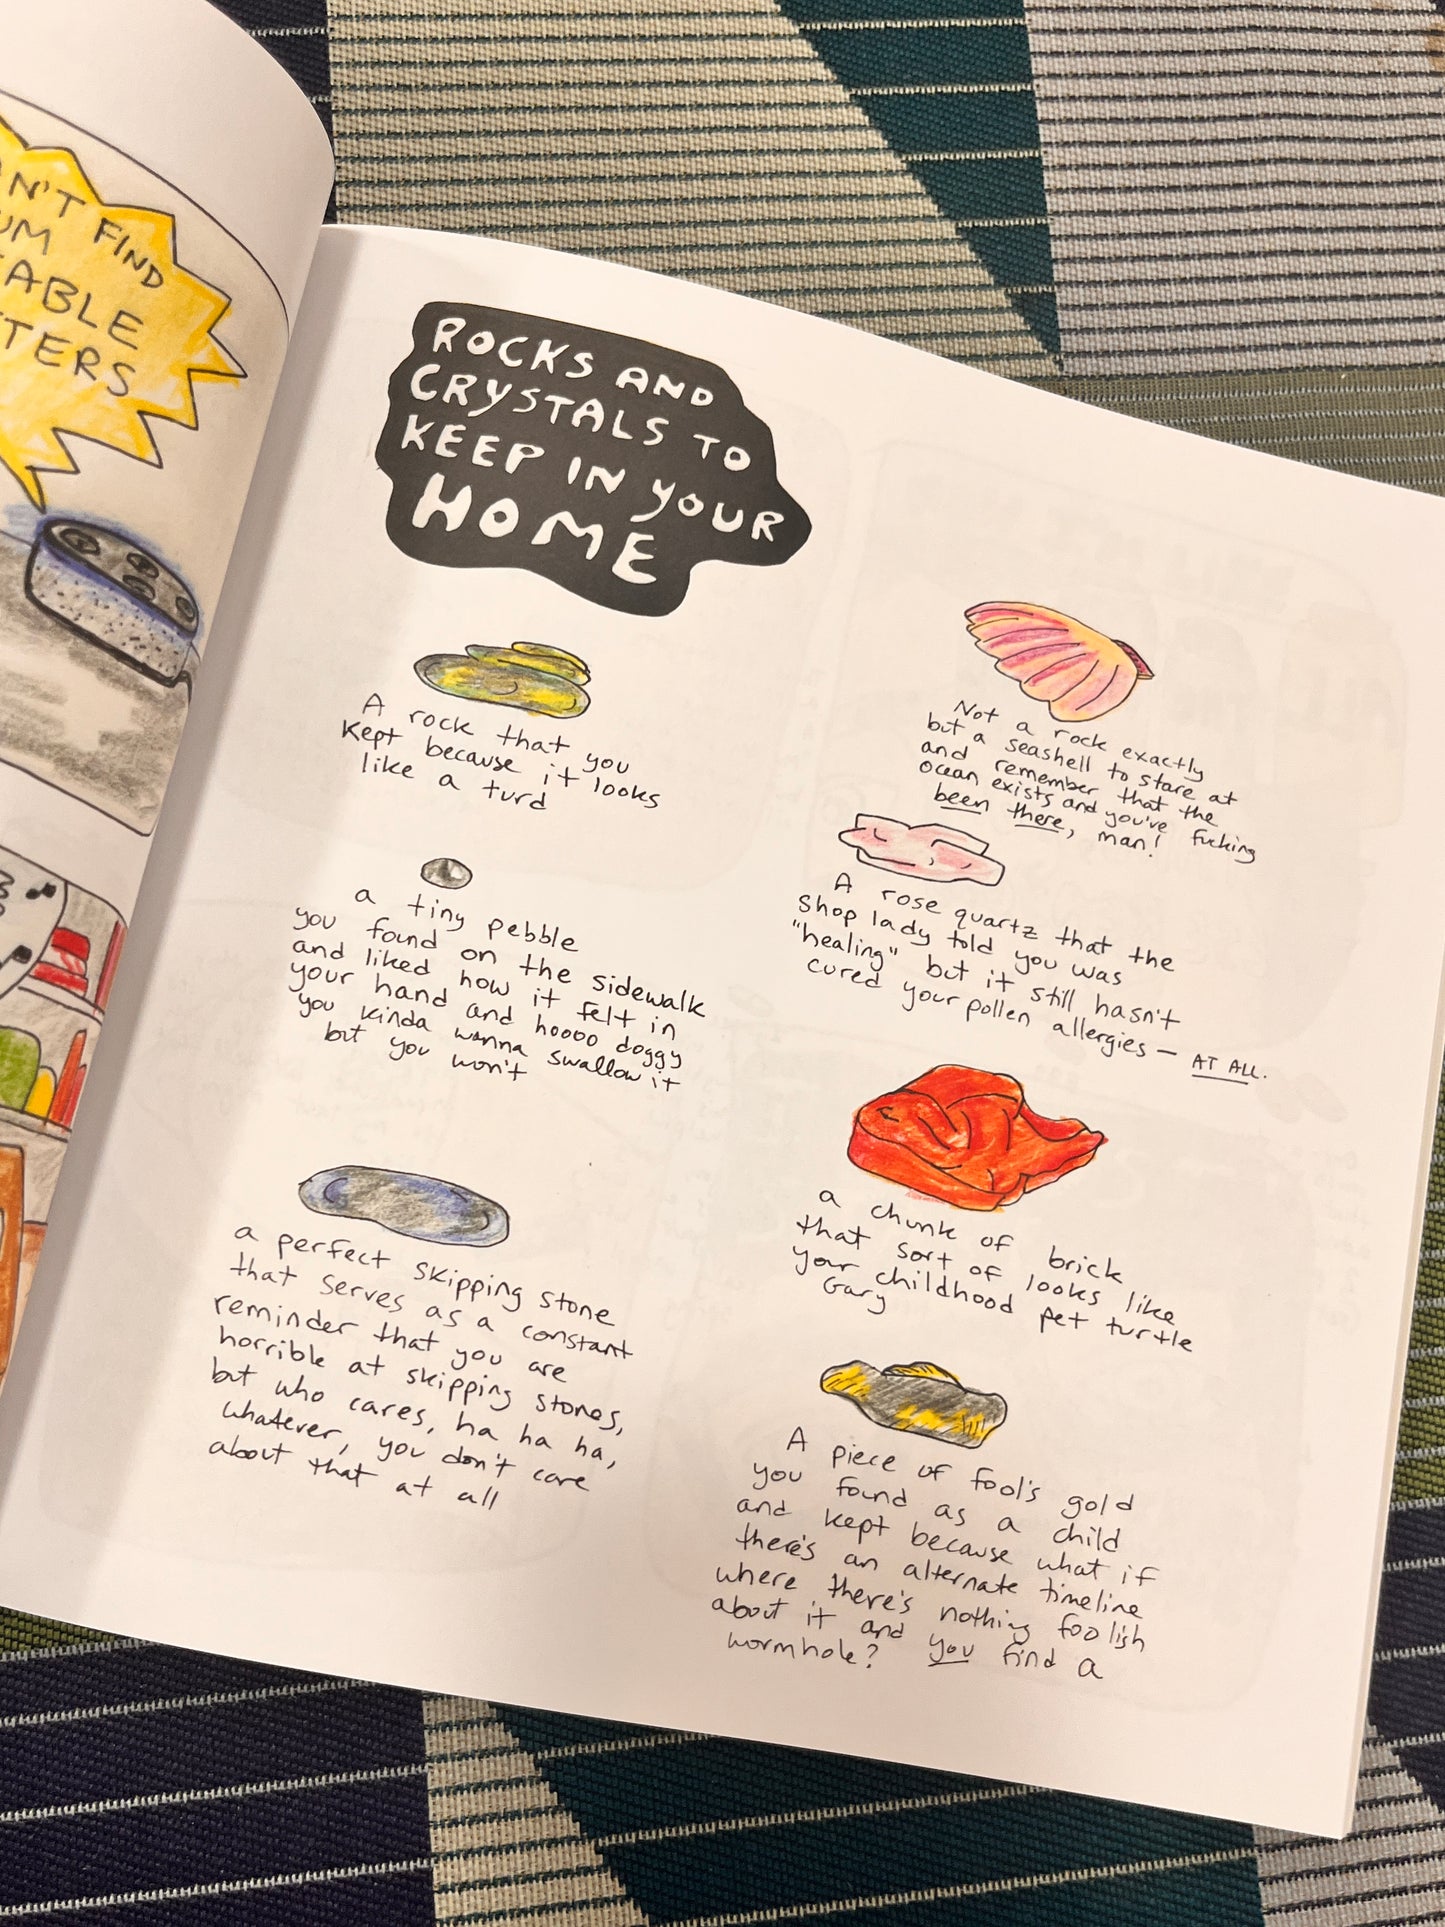 N'T FIND
UM
TABLE
TTERS
ROCKS AND
CRYSTALS TO
KEEP IN YOUR
HOME
A rock that you
kept because it looks
like a turd
a tiny pebble
you found on the sidewalk
and liked how it felt in
your hand and hoooo doggy
you kinda wanna swallow it
but you won't
a perfect skipping stone
that serves as a constant
reminder that you are
horrible at skipping stones,
but who cares, ha ha ha,
whatever, you don't care
about that at all
Not a rock exactly
but a seashell to stare at
and remember that the
ocean exists and you've fucking
been there, man!
A rose quartz that the
shop lady told you was
"healing" but it still hasn't
cured your pollen allergies — AT ALL.
a chunk of brick
that sort of looks like
your childhood pet turtle
Gary
A piece of fool's gold
you found as a child
and kept because what if
there's an alternate timeline
where there's nothing foolish
about it and you find a
wormhole?